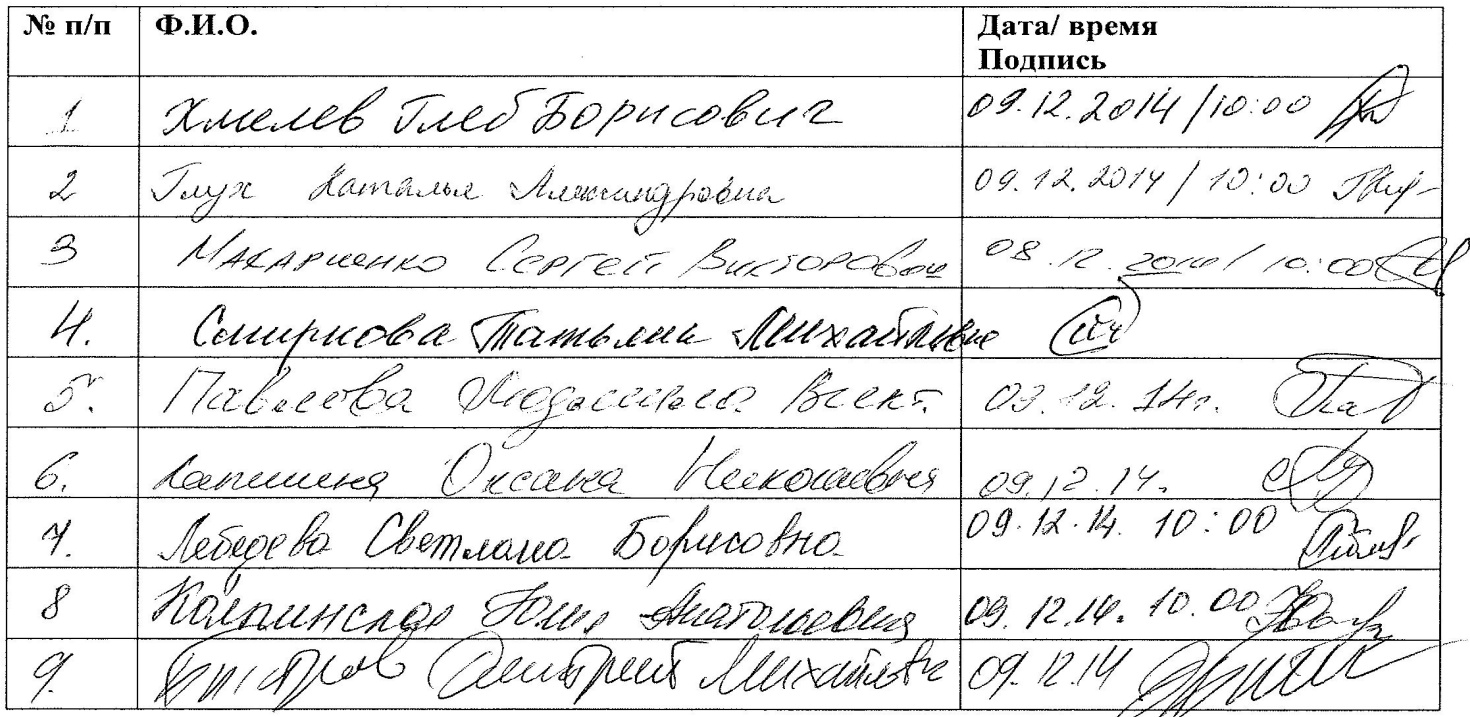 № п/п Ф.И.О. Дата/ время
Подпись
1 Хмелев Глеб Борисович 09.12.2014 /10:00
2 Глух Наталья Александровна 09.12.2014 / 10:00
3 Макариенко Сергей Викторович 09.12.2014 / 10:00
4. Смирнова Татьяна Михайловна
5. Павлова Людмила Викт. 09.12.14г.
6. Оксана Николаевна 09.12.14.
7. Лебедева Светлана Борисовна 09.12.14. 10:00
8 Колпинская Юлия Анатольевна 09.12.14. 10.00
9. Дмитрий Михайлович 09.12.14